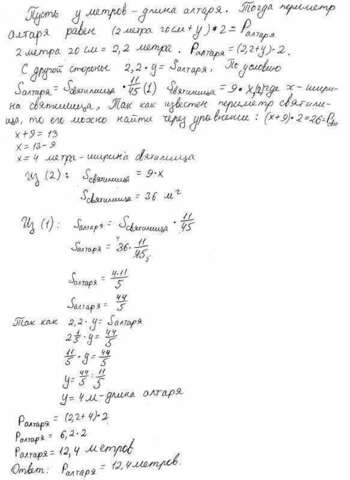 Пусть y метров – длина алтаря. Тогда периметр
алтаря равен (2 метра 20 см + y) • 2 = Pалтаря
2 метра 20 см = 2,2 метра. Pалтаря = (2,2+y)·2.
С другой стороны 2,2·y = Sалтаря. По условию
Sалтаря = Sсвятилища · 11/45 (1) Sсвятилища = 9·x где x – шири-
на святилища. Так как известен периметр святили-
ща, то его можно найти через уравнение: (x+9)·2=26=Pсв
x+9=13
x=13-9
x=4 метра – ширина святилища
Из (2): Sсвятилища = 9·x
Sсвятилища = 36 м²
Из (1): Sалтаря = Sсвятилища · 11/45
Sалтаря = 36 · 11/45 5
Sалтаря = 4·11/5
Sалтаря = 44/5
Так как 2,2·y = Sалтаря
2 1/5 · y = 44/5
11/5 · y = 44/5
y = 44/5 : 11/5
y = 4 м – длина алтаря
Pалтаря = (2,2+4)·2
Pалтаря = 6,2·2
Pалтаря = 12,4 метров
Ответ: Pалтаря = 12,4 метров.